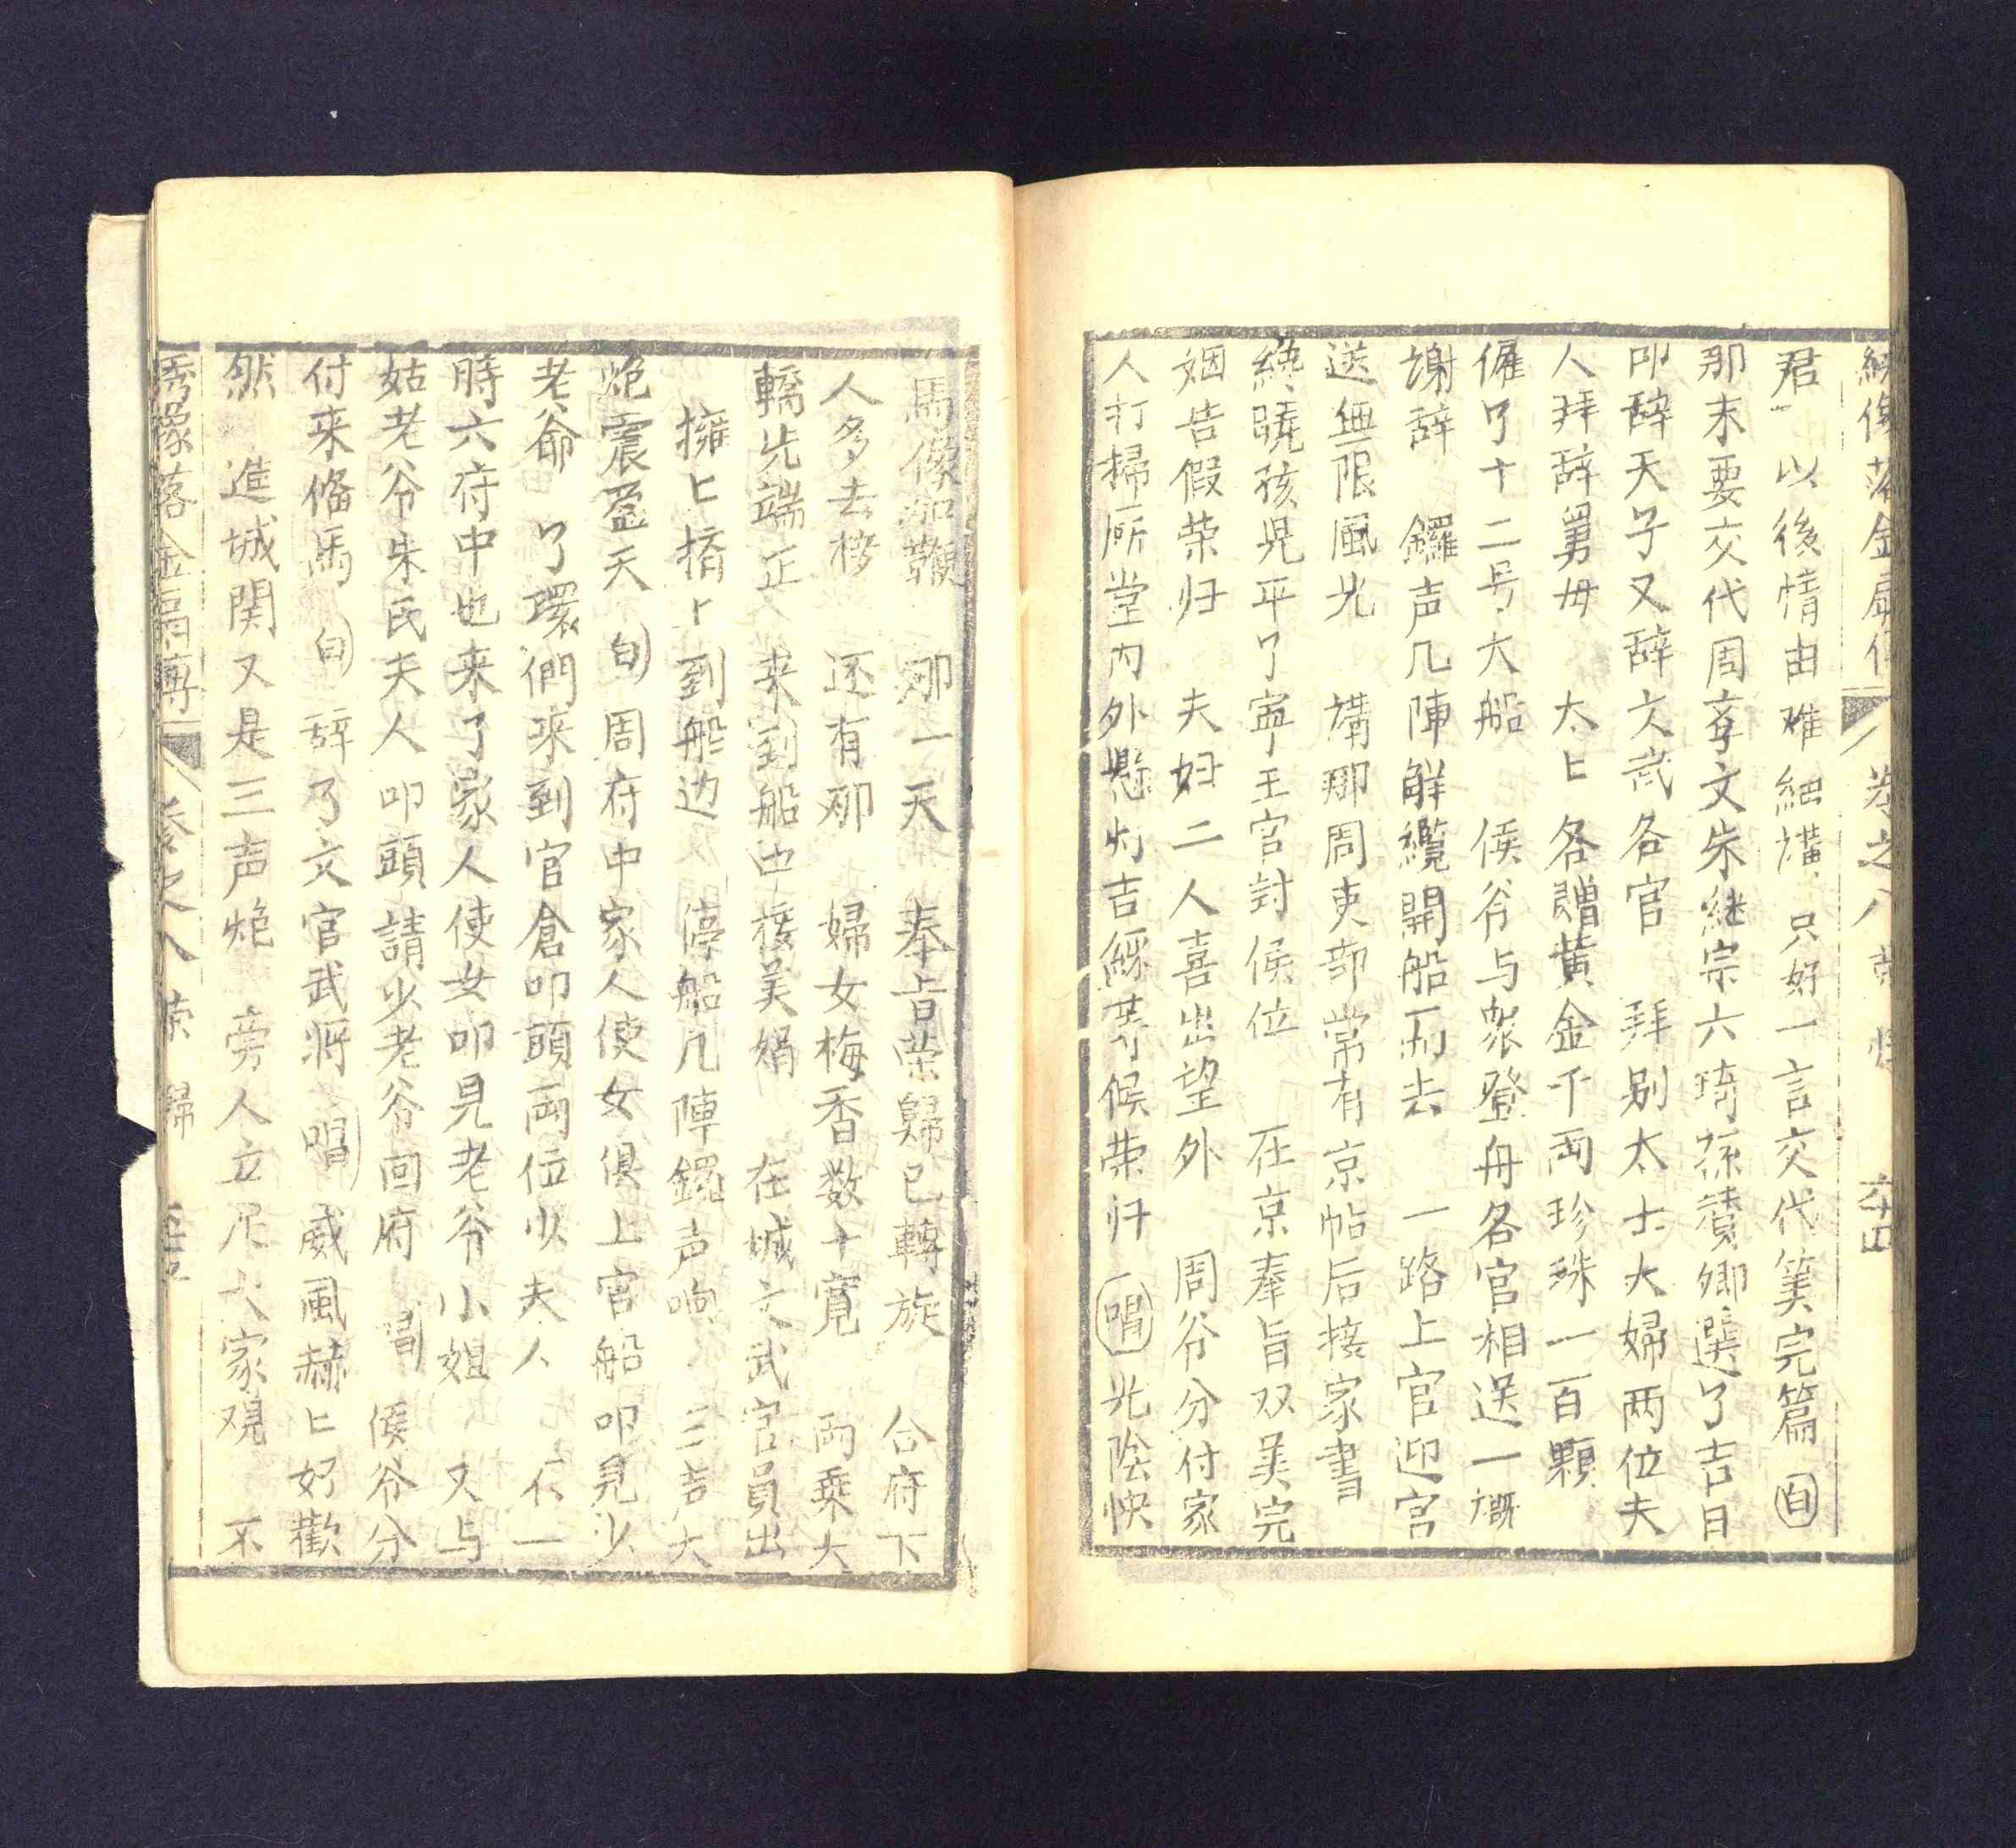 綉像落金扇傳 卷之八 荣歸 六十四
君 以後情由难細講 只好一言交代筭完篇 白
那末要交代周孝文朱継宗六琦蓀賛卿選了吉日
叩辞天子又辞文武各官 拜别太士大婦两位夫
人拜辞舅母 太匕各贈黄金千両珍珠一百顆
僱了十二号大船 侯爷与衆登舟各官相送一概
謝辞 鑼声几陣解纜開船而去 一路上官迎官
送無限風光 講那周吏部常有京帖后接家書
繞曉孩児平了寧王官封候位 在京奉旨双美完
姻告假荣归 夫妇二人喜出望外 周爷分付家
人打掃㕔堂内外懸灯吉綵等候荣归 唱 光陰快
馬像加鞭 那一天 奉旨荣歸已轉旋 合府下
人多去接 还有那 婦女梅香数十寛 両乗大
轎先端正 来到船中接美娟 在城文武官員出
擁匕擠匕到船边 停船几陣鑼声响 三吉大
炮震盈天 白 周府中家人使女俱上官船叩見少
老爺 了環們來到官倉叩頭両位少夫人 不一
時六府中也来了家人使女叩見老爷小姐 又与
姑老爷朱氏夫人叩頭請少老爷回府 唱 侯爷分
付来俻馬 白 辞了文官武将 唱 威風赫匕好歡
然 進城関又是三声炮 旁人立尼大家观 不
綉像落金扇傳 卷之八 荣歸 六十五